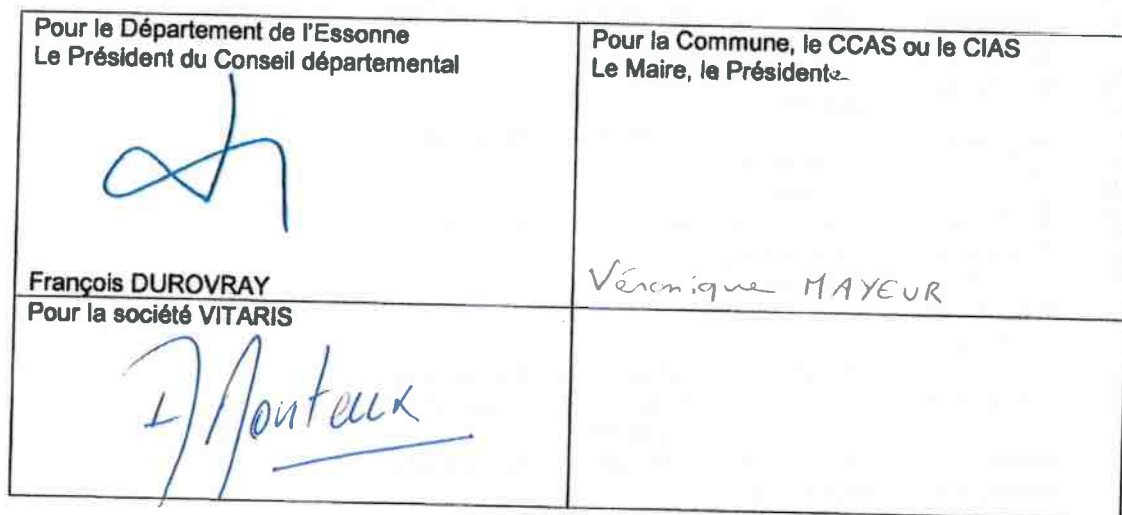 Pour le Département de l'Essonne
Le Président du Conseil départemental
François DUROVRAY
Pour la Commune, le CCAS ou le CIAS
Le Maire, le Présidente
Véronique MAYEUR
Pour la société VITARIS
Monteux